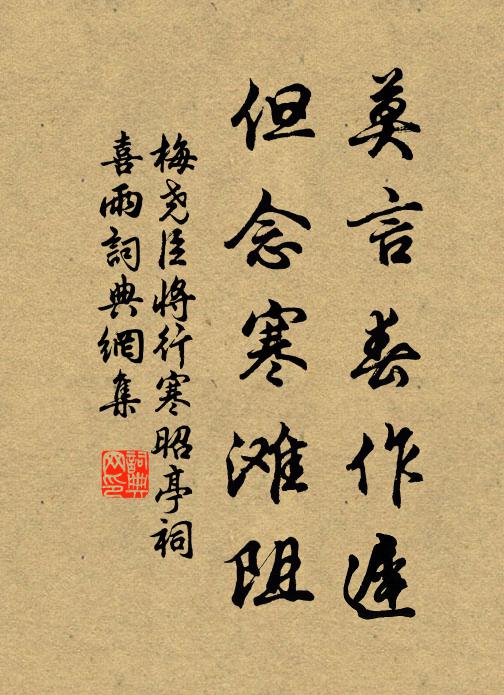 莫言春作遲
但念寒滩阻
梅尧臣將行赛昭亭祠
喜雨詞典網集
詞典
网印